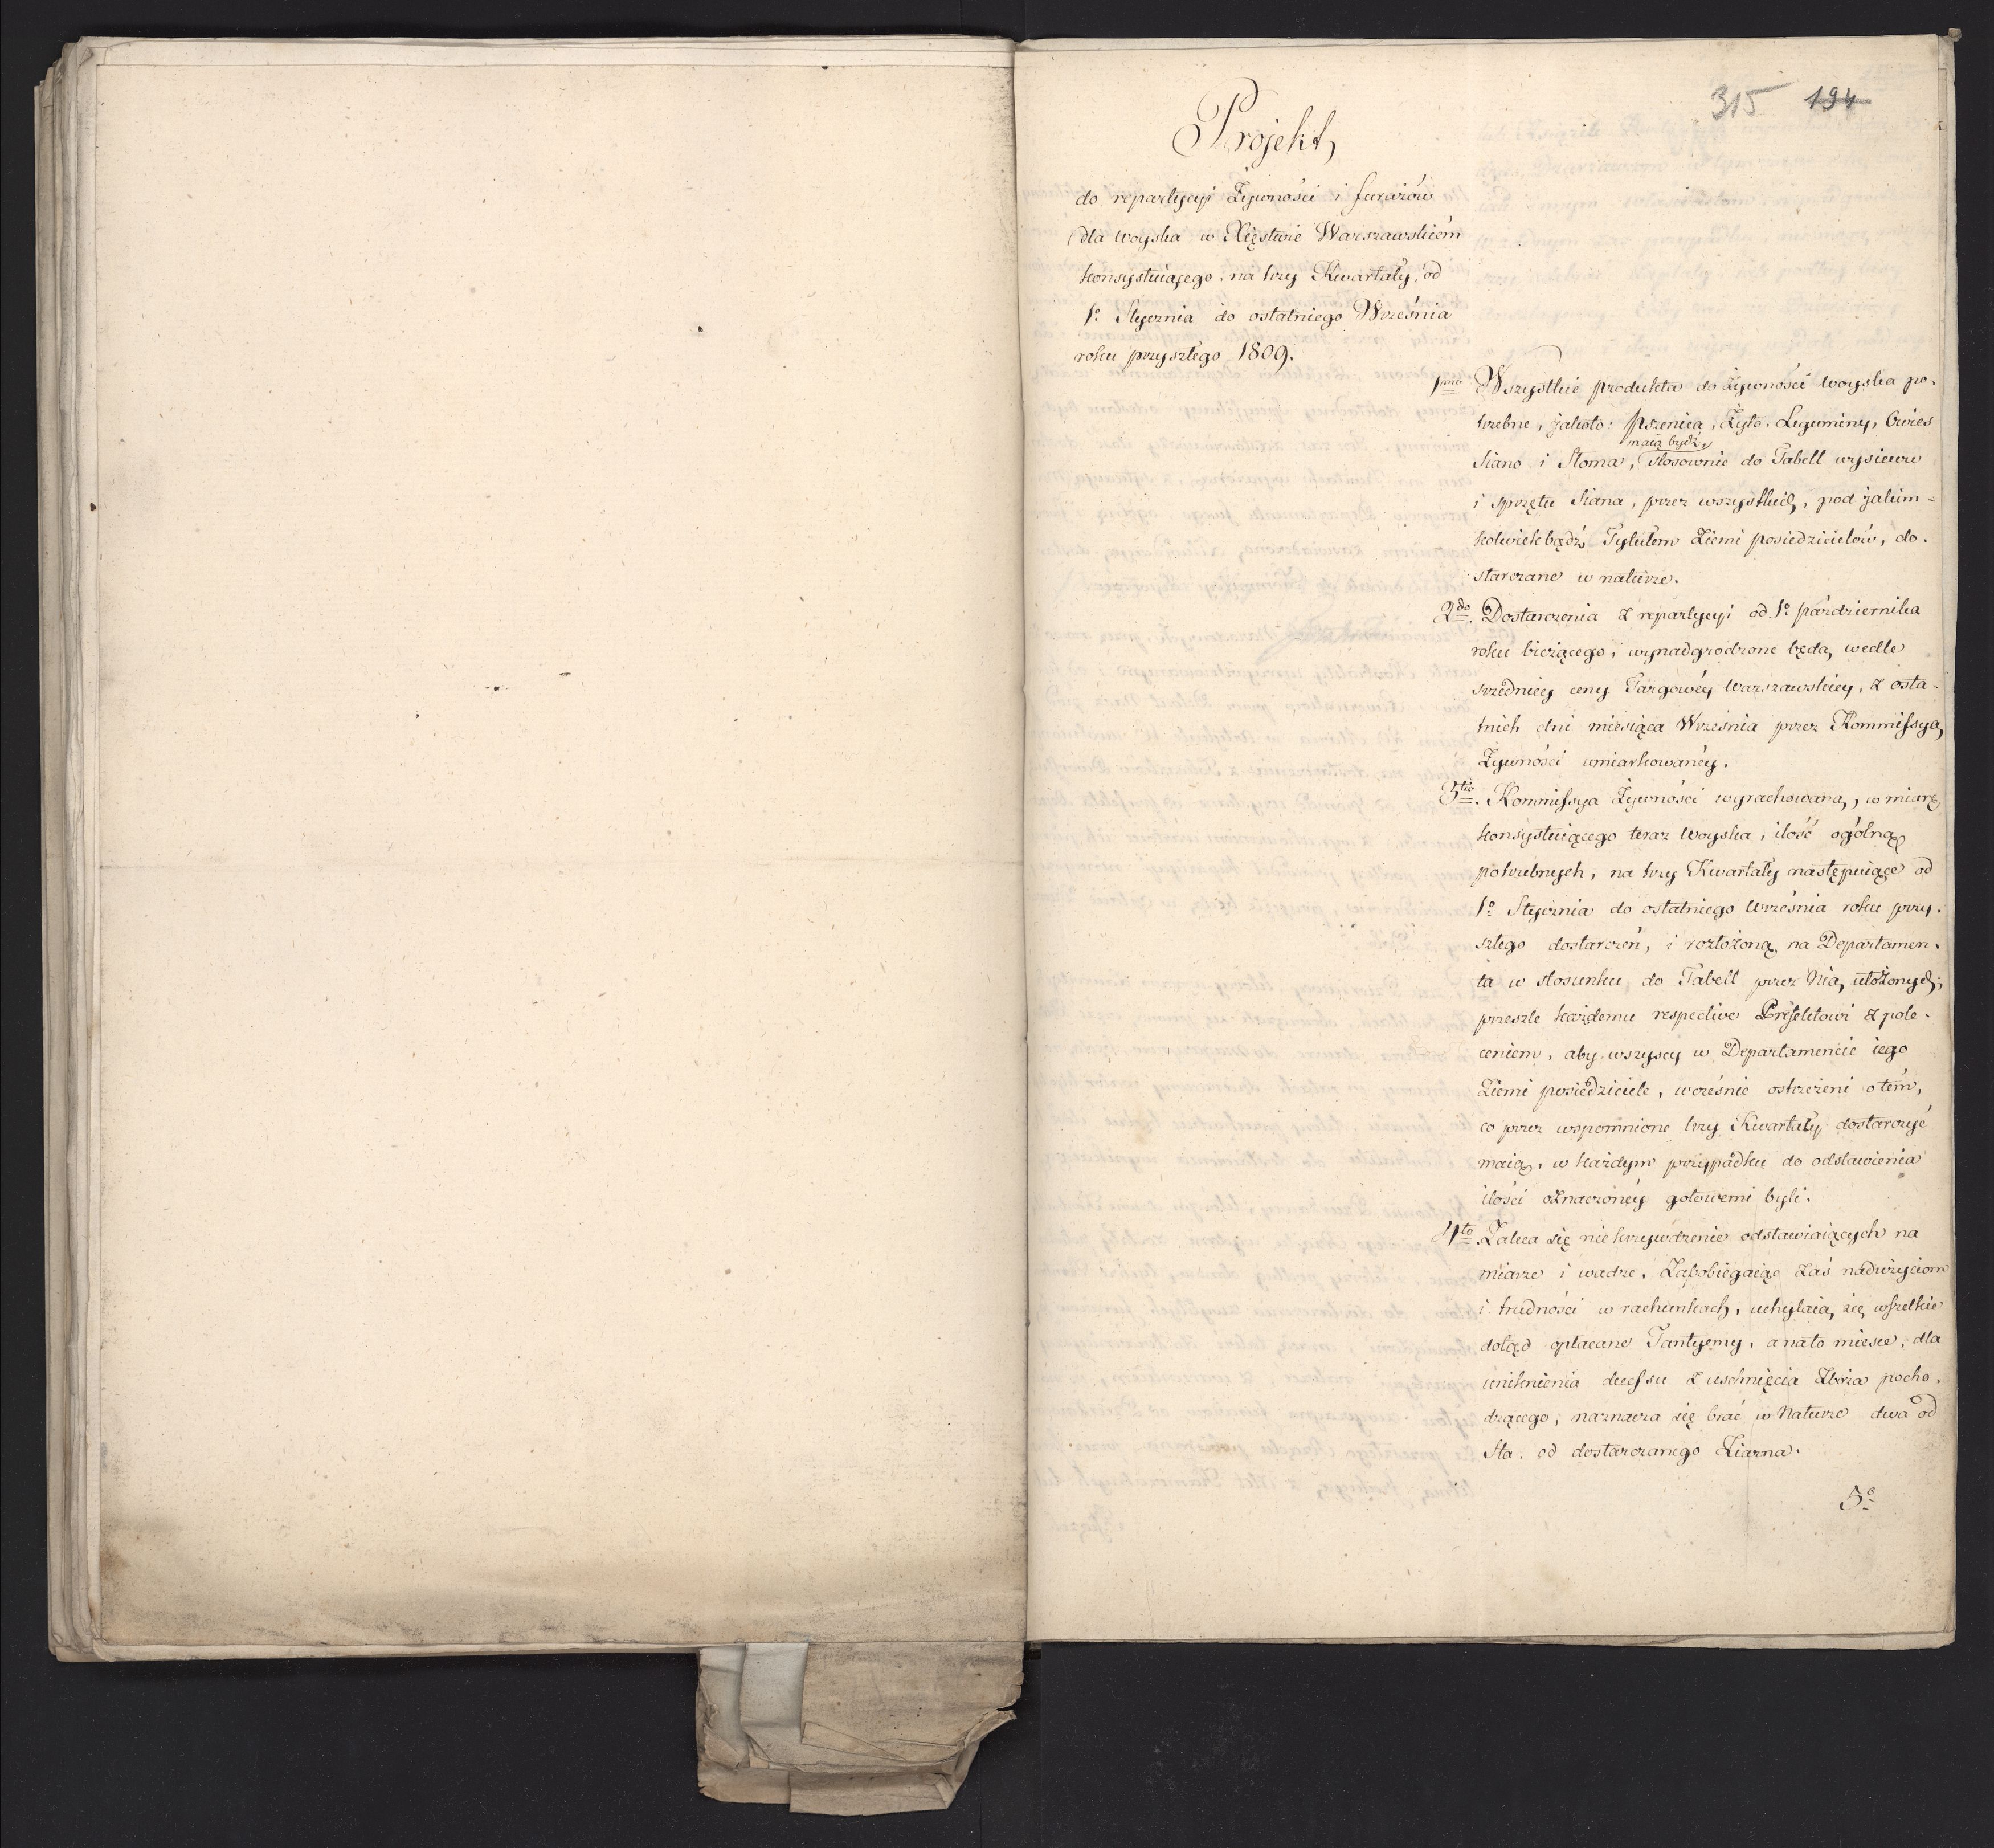 315 194
Projekt,
do repartycyi Żywności i furażów
dla woyska w Xięstwie Warszawskiém
konsystuiącego, na trzy Kwartały, od
1º Stycznia do ostatniego Września
roku przyszłego 1809.
1mo Wszystkie produkta do Żywności woyska po-
trzebne, jakoto: Pszenica, Żyto, Leguminy, Owies
maią bydź,
Siano i Słoma, stosownie do Tabell wysiewu
i sprzętu Siana, przez wszystkich, pod jakim-
kolwiekbądź Tytułem Ziemi posiedzicielów, do-
starczane w naturze.
2do. Dostarczenia z repartycyi od 1º października
roku bieżącego, wynadgrodzone będą, wedle
srzedniey ceny Targowéy Warszawskiey, z osta-
tnich dni miesiąca Września przez Kommissyą
Żywności umiarkowanéy.
3tio. Kommissya Żywności wyrachowaną, w miarę
konsystuiącego teraz woyska, ilość ogólną
potrzebnych, na trzy Kwartały następuiące od
1º Stycznia do ostatniego Września roku przy-
szłego dostarczeń, i rozłożoną na Departamen-
ta w stosunku do Tabell przez Nią ułożonych,
przeszle każdemu respective Prefektowi z pole-
ceniem, aby wszyscy w Departamencie iego
Ziemi posiedziciele, wcześnie ostrzeżeni o tém,
co przez wspomnione trzy Kwartały dostarczyć
maią, w każdym przypadku do odstawienia
ilości oznaczonéy gotowemi byli.
4to. Zaleca się niekrzywdzenie odstawiaiących na
miarze i wadze. Zapobiegaiąc zaś nadużyciom
i trudności w rachunkach, uchylaią się wszelkie
dotąd opłacane Tantyemy, a nato miesce, dla
uniknienia duchsu z uschnięcia Zboża pocho-
dzącego, naznacza się brać w Naturze dwa od
Sta, od dostarczanego Ziarna.
5º